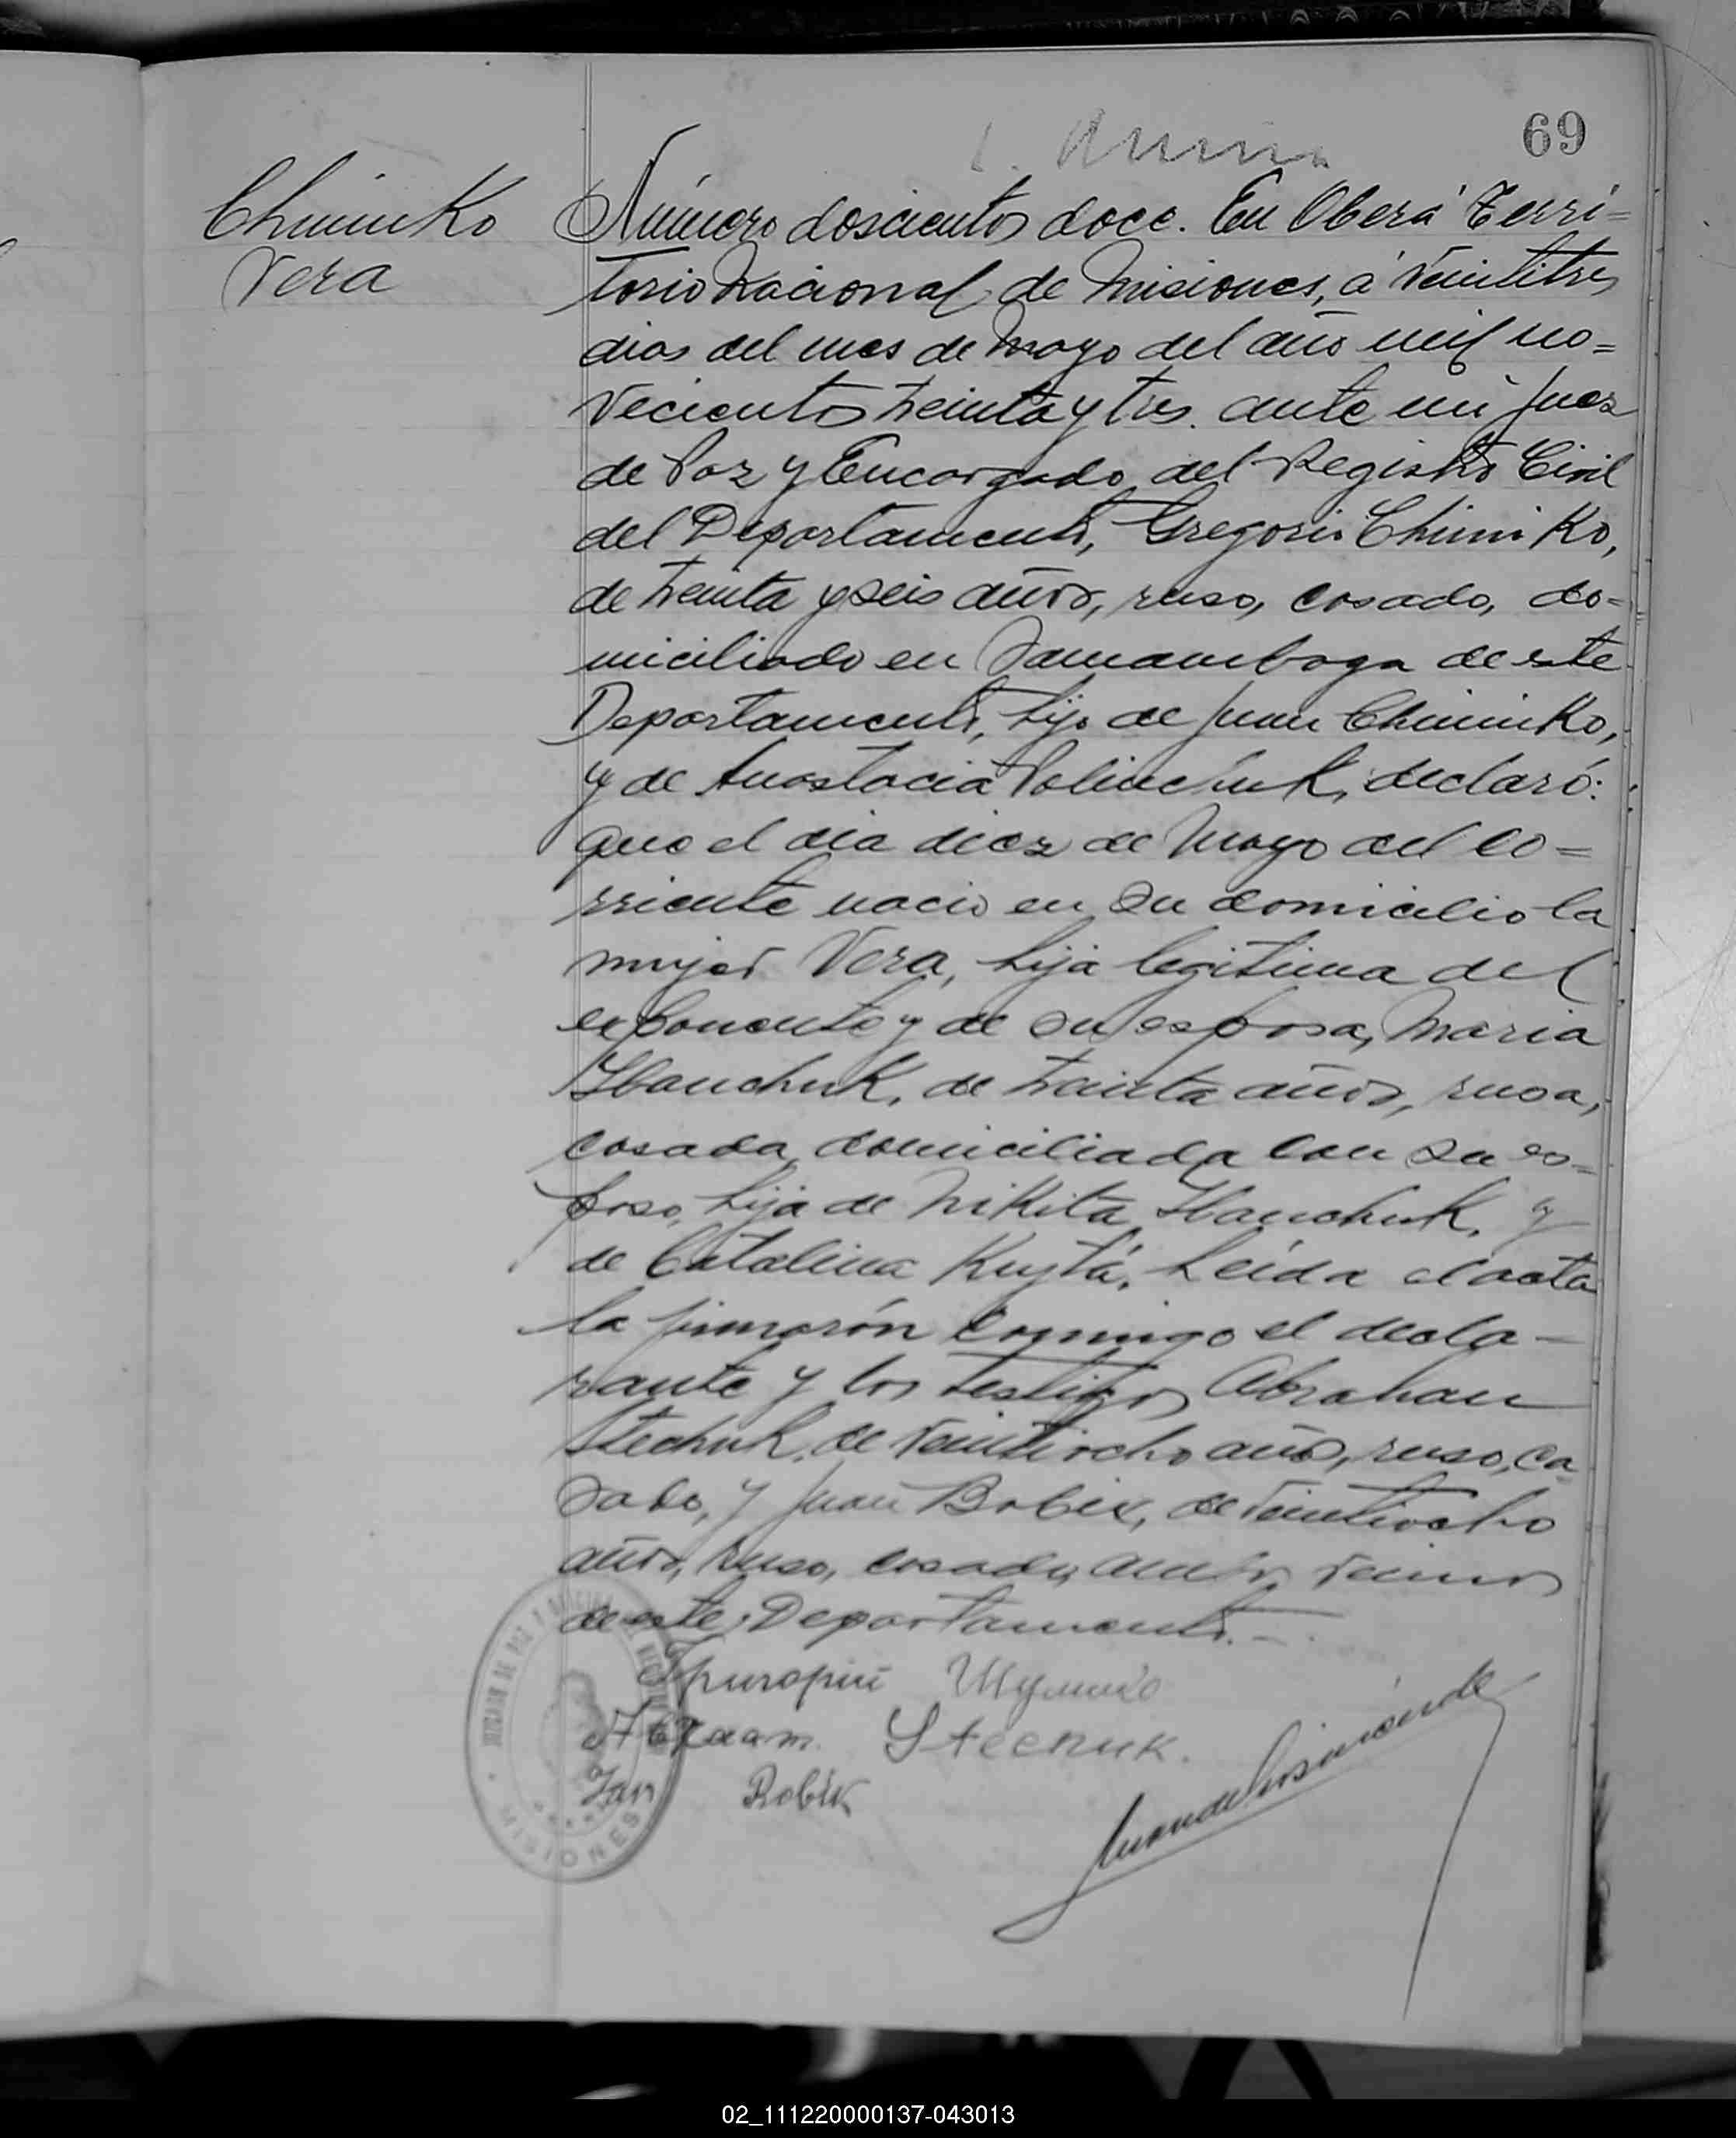 69
Chiminko
Vera
Número doscientos doce. En Oberá Terri=
torio Nacional de Misiones, á veintitres
dias del mes de Mayo del año mil no=
vecientos treinta y tres. ante mi Juez
de Paz y Encargado del Registro Civil
del Departamento, Gregorio Chiminko,
de treinta y seis años, ruso, casado, do=
miciliado en Samambaya de este
Departamento, hijo de Juan Chiminko,
y de Anastacia Polinchuk, declaró:
que el dia diez de Mayo del co=
rriente nacio en su domicilio la
mujer Vera, hija legitima del
exponente y de su esposa, Maria
Ilanchuk, de treinta años, rusa,
casada, domiciliada con su es=
poso, hija de Nikita Ilanchuk, y
de Catalina Kuytá. Leída el acta
la firmarón conmigo el decla-
rante y los testigos Abrahan
Stechuk, de veintiocho años, ruso, ca=
sado, y Juan Bobix, de veintiocho
años, ruso, casado, ambos vecinos
de este Departamento.-
Григорий
Stechuk.
Jan Robik
MISIONES
02_111220000137-043013